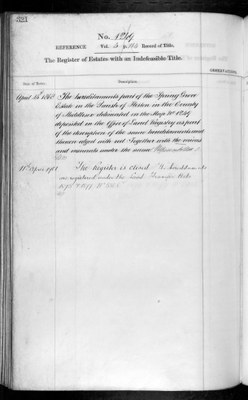 321
No. 1249
REFERENCE Vol. p. Record of Title.
The Register of Estates with an Indefeasible Title.
OBSERVATIONS.
Date of Entry.
Description.
April 1868 The hereditaments part of the Spring Grove
Estate in the Parish of Heston in the County
of Middlesex delineated in the Map No 1249
deposited in the Office of Land Registry as part
of the description of the same hereditaments and
thereon edged with red Together with the mines
and minerals under the same
11th April The Register is closed The hereditaments
are registered under the Land Transfer Acts